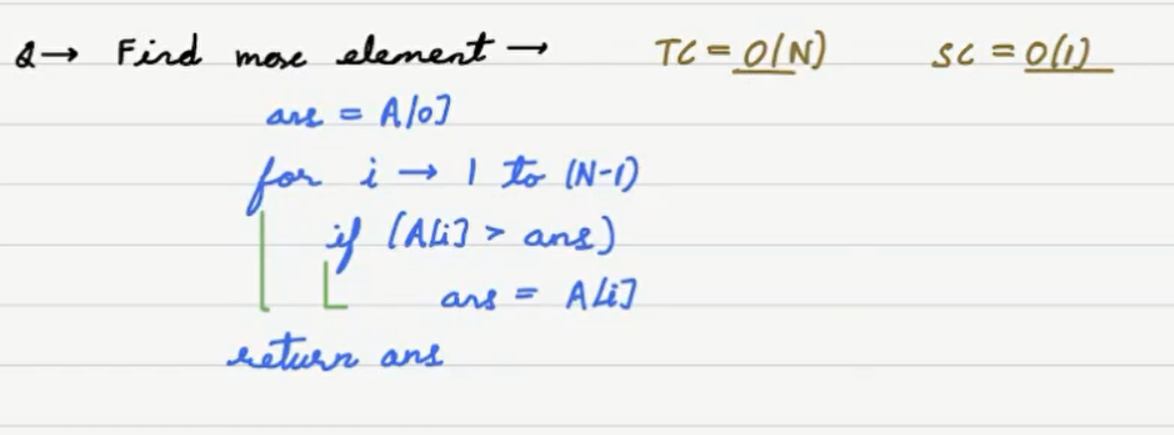 Q→ Find max element → TC = O(N) SC = O(1)
ans = A[0]
for i → 1 to (N-1)
if (A[i] > ans)
ans = A[i]
return ans